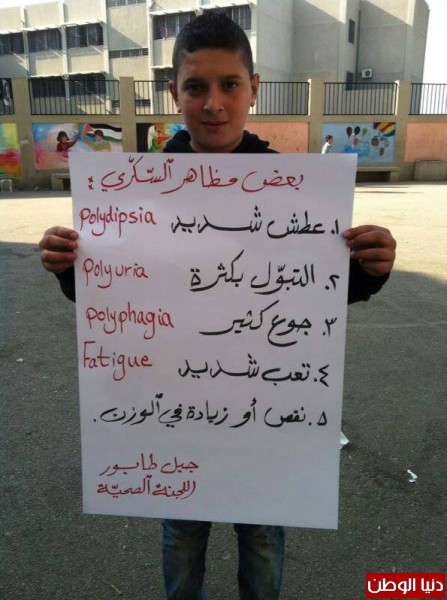 بعض مظاهر السكّري :
١. عطش شديد Polydipsia
٢. التبوّل بكثرة Polyuria
٣. جوع كثير Polyphagia
٤. تعب شديد Fatigue
٥. نقص أو زيادة في الوزن.
جبل طابور
اللجنة الصحيّة
دنيا الوطن